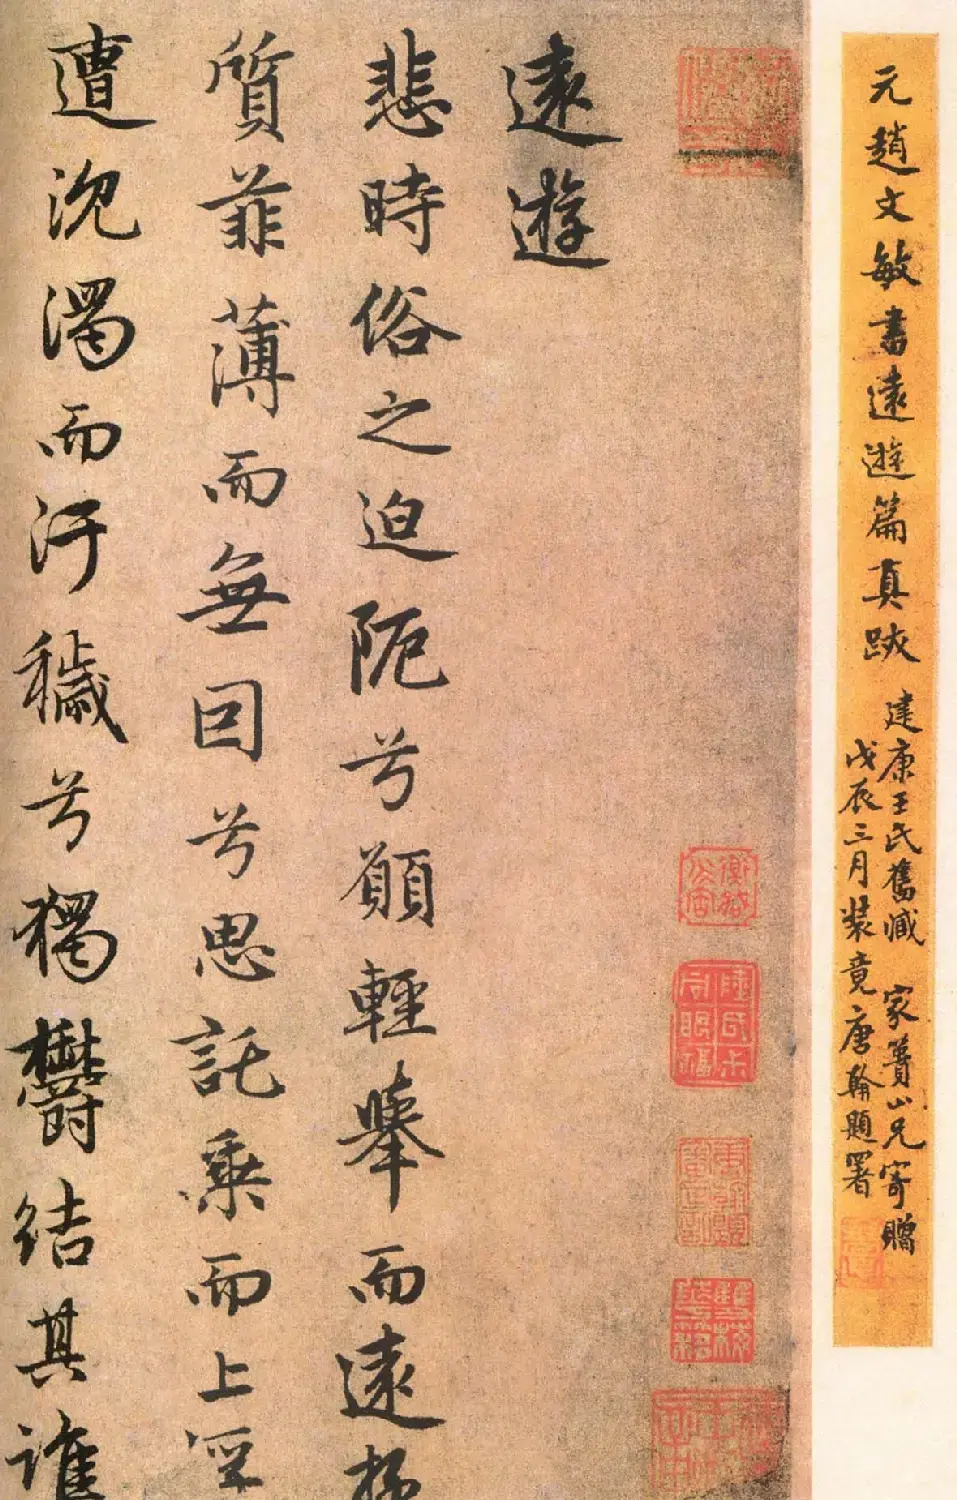 元趙文敏書遠遊篇真跋
建康王氏舊藏 家蕢山兄寄贈
戊辰三月裝竟唐翰題署
遠遊
悲時俗之迫阨兮願輕舉而遠
質菲薄而無因兮思託乘而上浮
遭沈濁而汙穢兮獨鬱結其誰